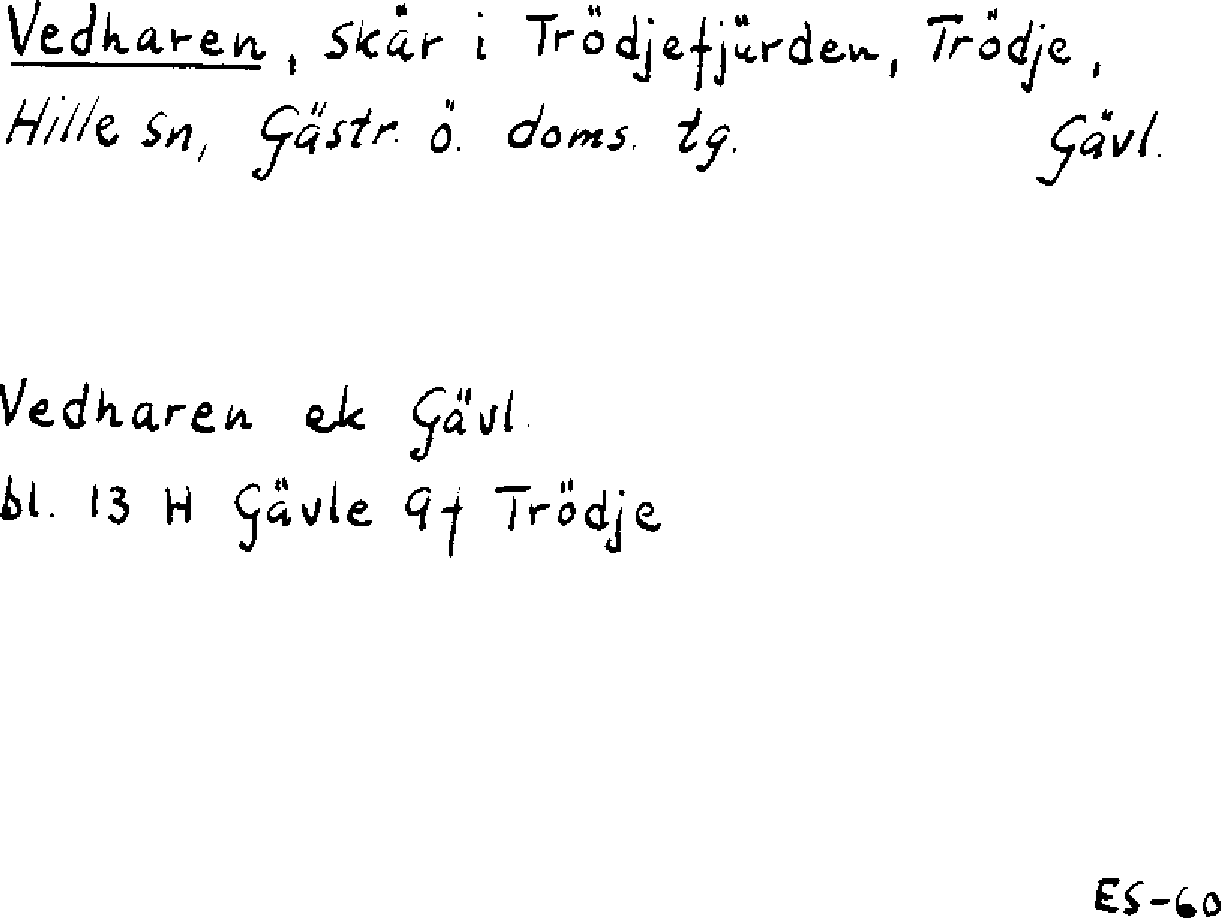 Vedharen, skär i Trödjefjärden, Trödje,
Hille sn, Gästr. ö. doms. tg. Gävl.
Vedharen ek Gävl.
bl. 13 H Gävle 9f Trödje
ES-60